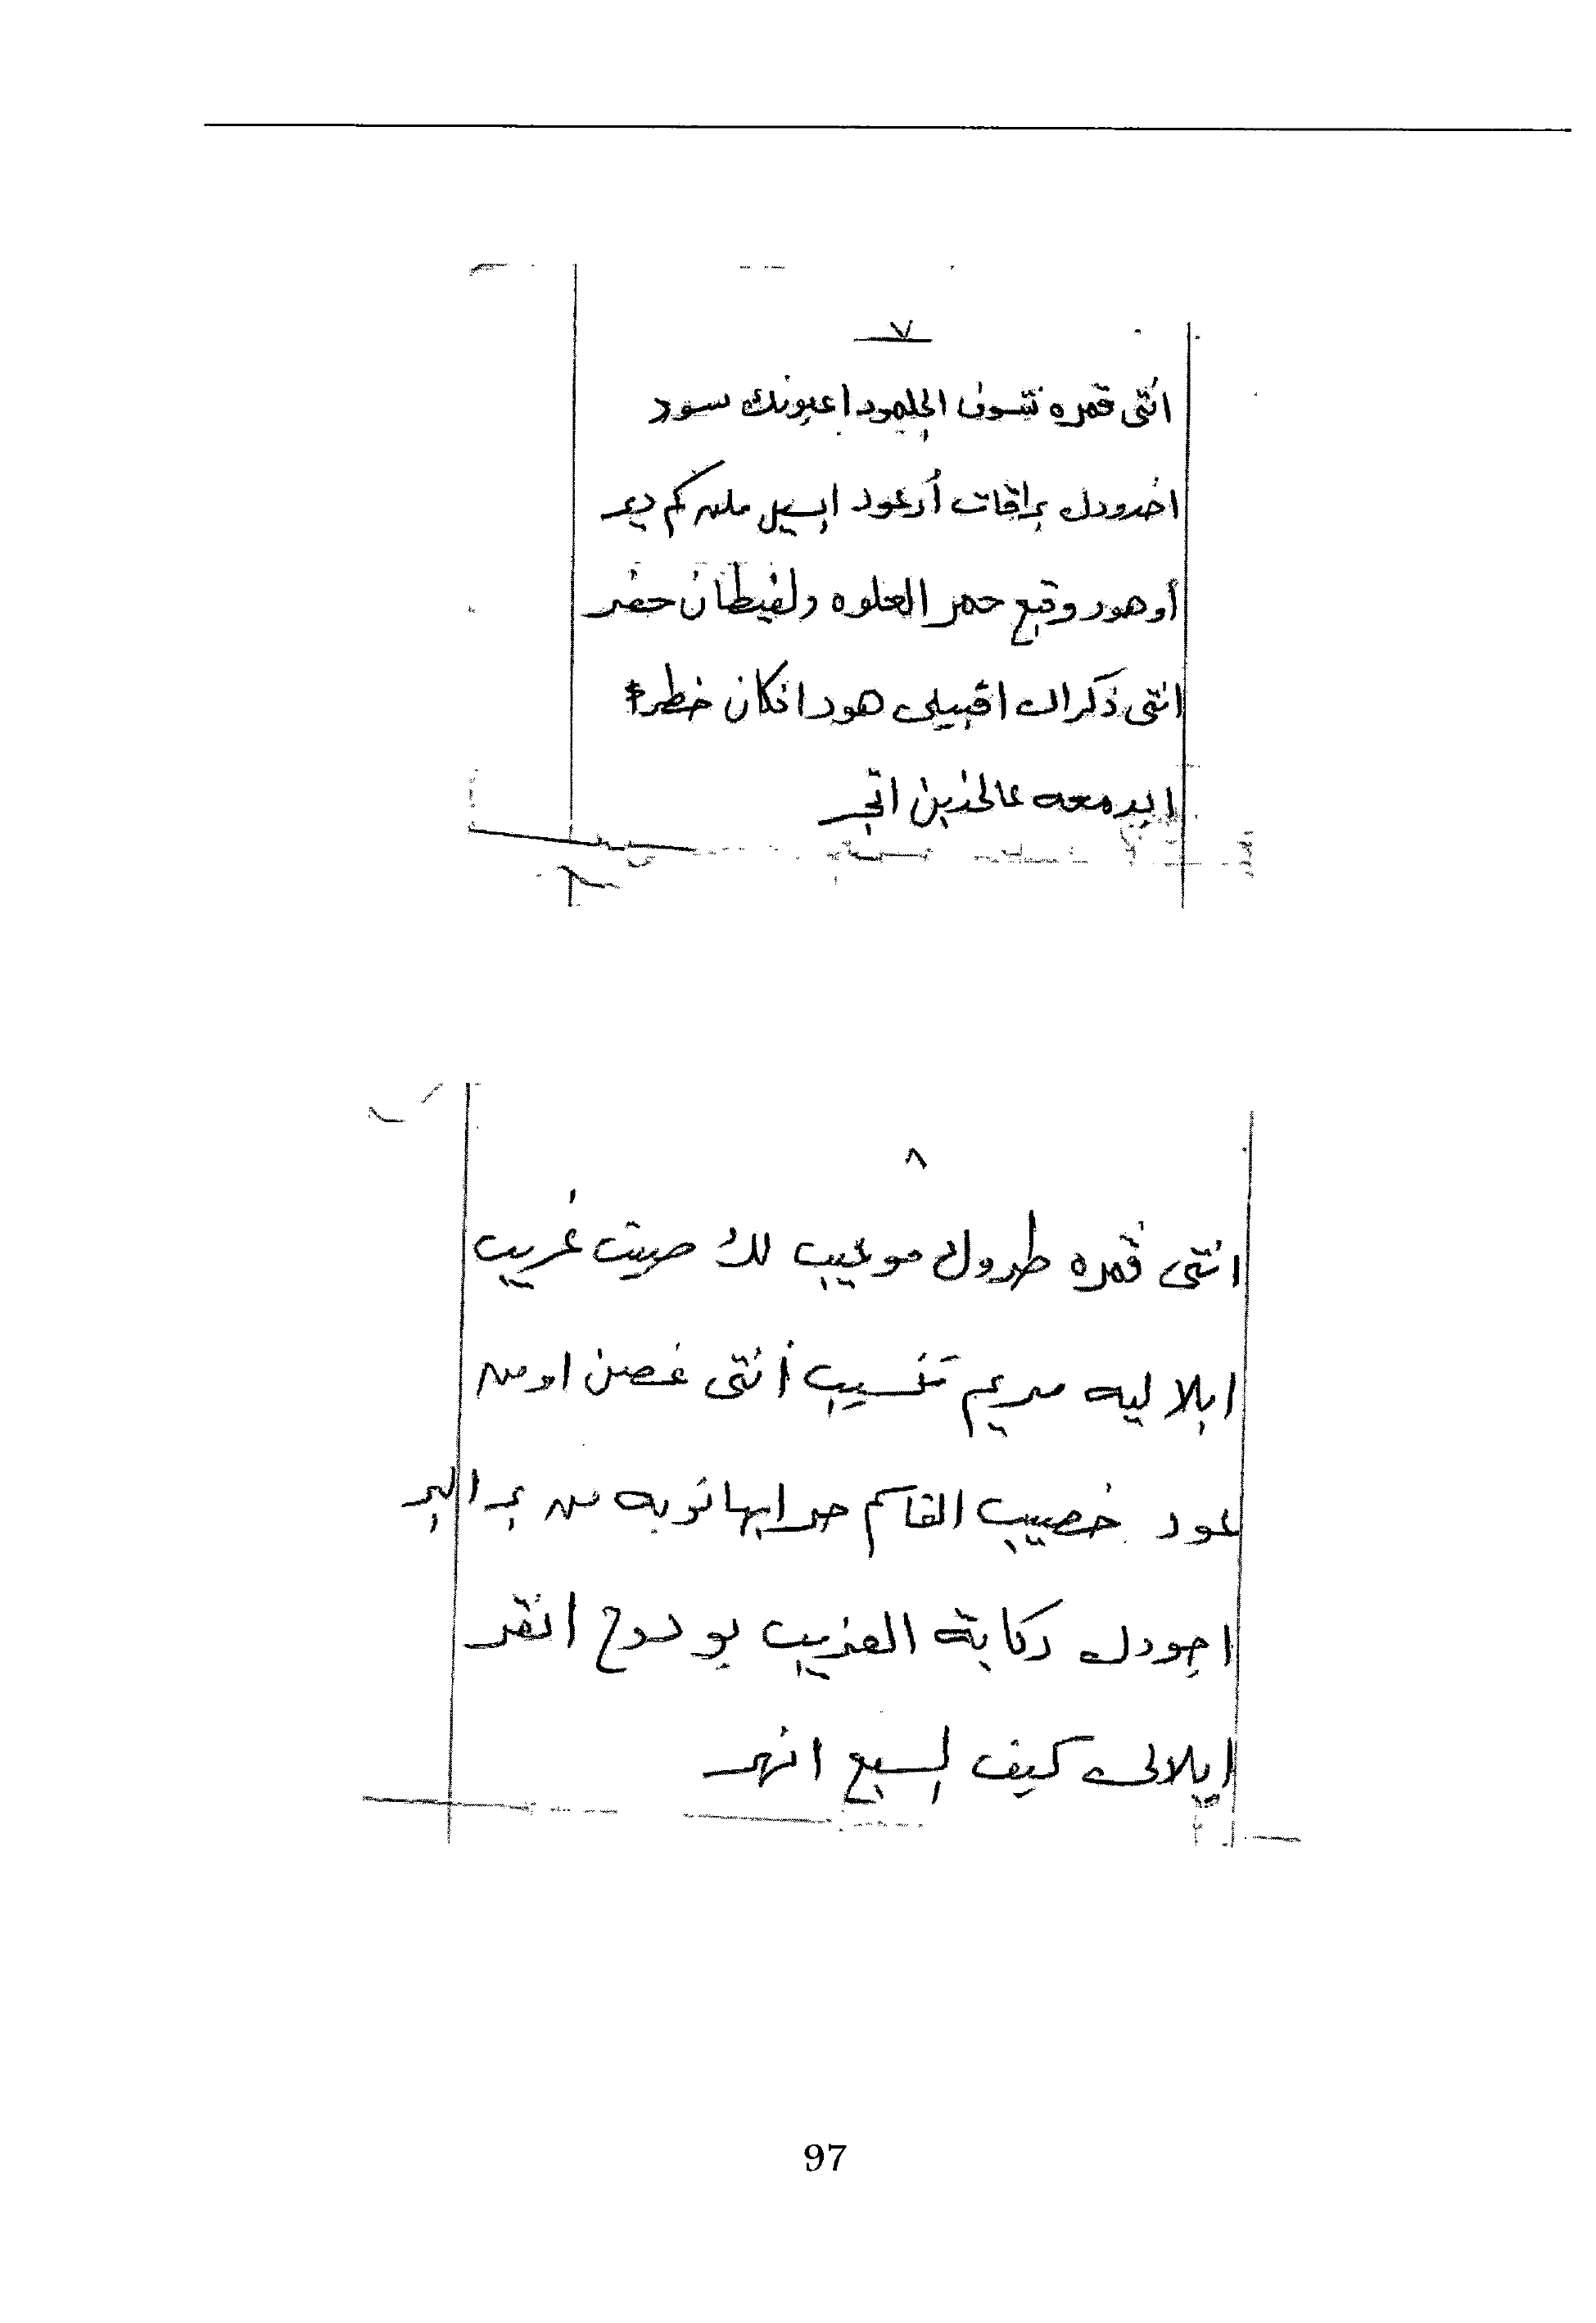 ٧
انتى قمره تشوف الجلمود اعيونك سود
اخدودك براقات أرعود ابسيل ملن كم ديم
أوهور وقيع حمر العلوه ولغيطان حفر
انتى ذكراك اقبيلى هود افكان خطر
ابدمعه عالخذين اتجر
٨
انتى قمره طردك موعيب لك صيت غريب
ابلا ليه مريم تنسيب أنتى غصن اومن
عود خصيب القاسم حدابها نوبه من بر البر
اجودك ركابة العذيب بو دوح انقر
ابلالى كيف السبع انهر
97